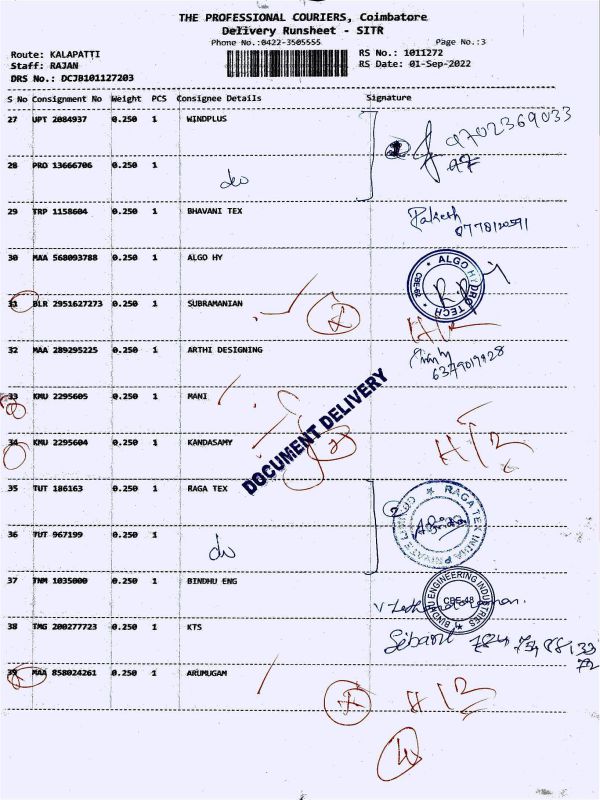 THE PROFESSIONAL COURIERS, Coimbatore
Delivery Runsheet - SITR
Phone No.:0422-3505555 Page No.:3
Route: KALAPATTI RS No.: 1011272
Staff: RAJAN RS Date: 01-Sep-2022
DRS No.: DCJB101127203
S No Consignment No Weight PCS Consignee Details Signature
27 UPT 2084937 0.250 1 WINDPLUS
9702369033
28 PRO 13666706 0.250 1 do
29 TRP 1158604 0.250 1 BHAVANI TEX Rakesh
30 MAA 568093788 0.250 1 ALGO HY
ALGO HYDRO TECH CBE-62
31 BLR 2951627273 0.250 1 SUBRAMANIAN
32 MAA 289295225 0.250 1 ARTHI DESIGNING
6379019928
33 KMU 2295605 0.250 1 MANI
DOCUMENT DELIVERY
34 KMU 2295604 0.250 1 KANDASAMY
35 TUT 186163 0.250 1 RAGA TEX
RAGA TEX INDIA PRIVATE LIMITED
36 TUT 967199 0.250 1 do
37 TNM 1035000 0.250 1 BINDHU ENG
BINDHU ENGINEERING INDUSTRIES CBE-48
38 TMG 200277723 0.250 1 KTS
39 MAA 858024261 0.250 1 ARUMUGAM